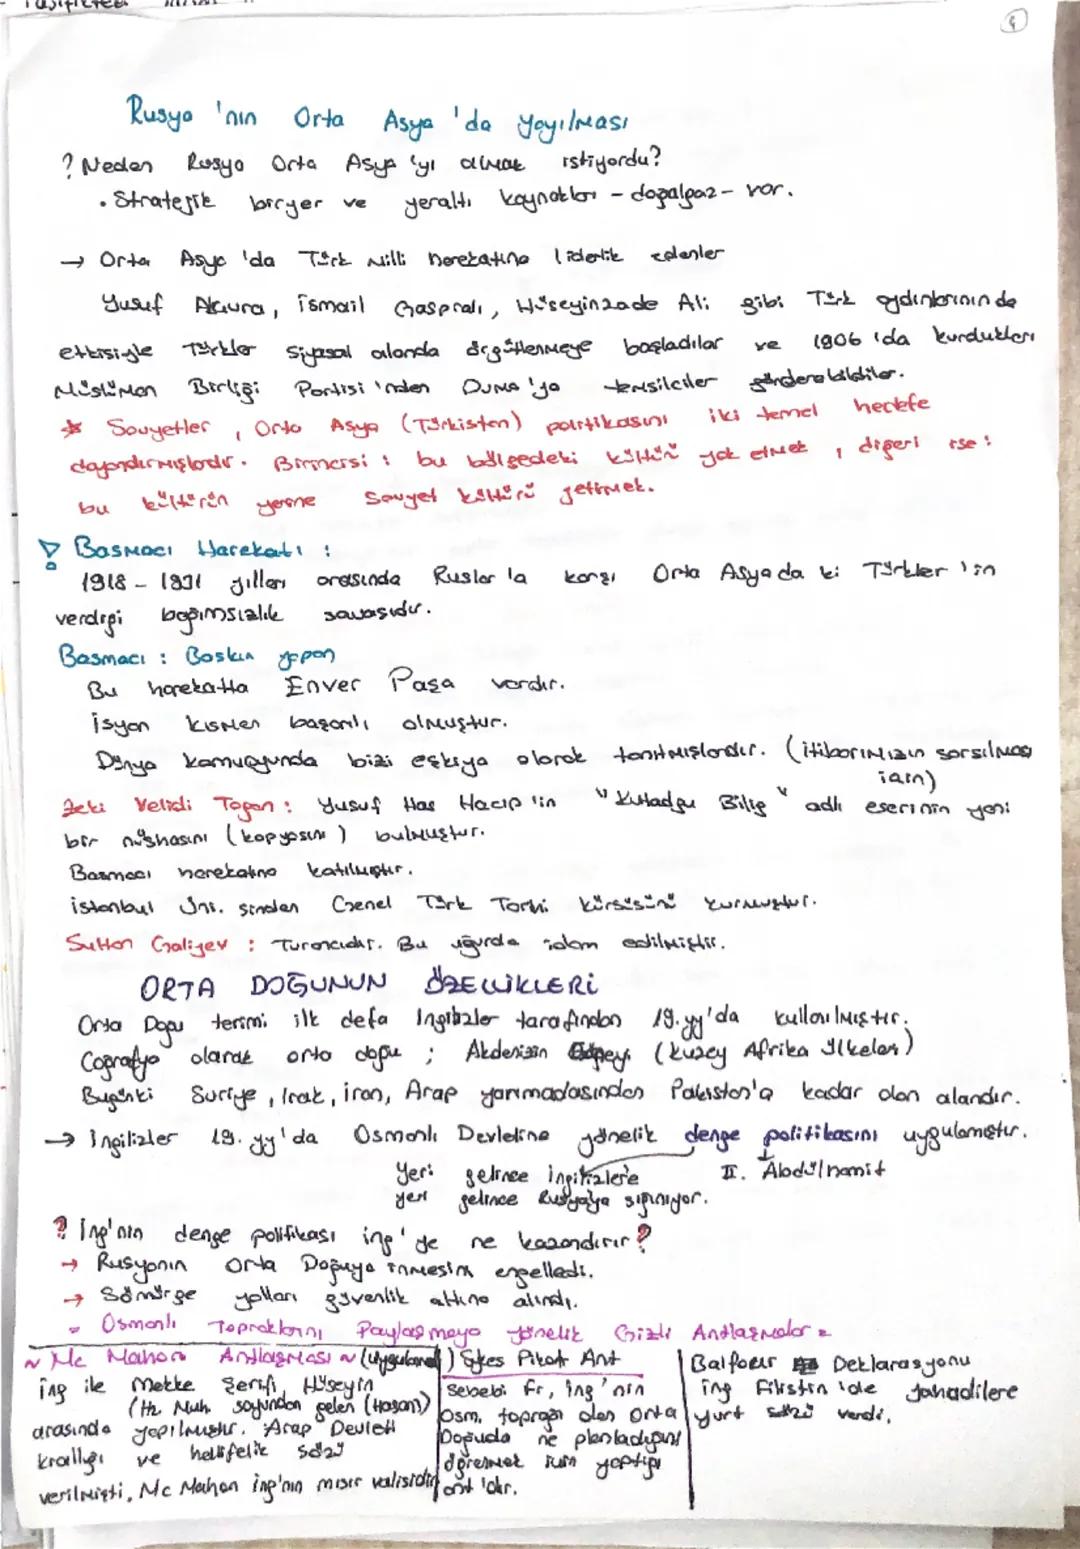 Rusya 'nın Orta Asya 'da Yayılması
? Neden Rusya Orta Asya 'yı almak istiyordu?
• Stratejik biryer ve yeraltı kaynakları - doğalgaz - var.
→ Orta Asya 'da Türk Milli harekatına liderlik edenler
Yusuf Akçura, İsmail Gaspralı, Hüseyinzade Ali gibi Türk aydınlarınında
etkisiyle Türkler siyasal alanda örgütlenmeye başladılar ve 1906 'da kurdukları
Müslüman Birliği Partisi 'nden Duma 'ya temsilciler gönderebildiler.
* Sovyetler, Orta Asya (Türkistan) politikasını iki temel hedefe
dayandırmışlardır. Birincisi : bu bölgedeki kültürü yok etmek, diğeri ise :
bu kültürün yerine Sovyet kültürü getirmek.
Basmacı Harekatı :
1918 - 1931 yılları arasında Ruslar 'la karşı Orta Asyada ki Türkler 'in
verdiği bağımsızlık savaşıdır.
Basmacı : Baskın yapan
Bu harekatta Enver Paşa vardır.
İsyan kısmen başarılı olmuştur.
Dünya kamuoyunda bizi eşkıya olarak tanıtmışlardır. (itibarımızın sarsılması
için)
Zeki Velidi Togan : Yusuf Has Hacip 'in "Kutadgu Bilig" adlı eserinin yeni
bir nüshasını (kopyasını) bulmuştur.
Basmacı harekatına katılmıştır.
İstanbul Üni. sinden Genel Türk Tarihi kürsüsünü kurmuştur.
Sultan Galiyev : Turancıdır. Bu uğurda idam edilmiştir.
ORTA DOĞUNUN ÖZELLİKLERİ
Orta Doğu terimi ilk defa İngilizler tarafından 19.yy'da kullanılmıştır.
Coğrafya olarak orta doğu ; Akdenizin (kuzey Afrika ülkeleri)
Bugünkü Suriye, Irak, İran, Arap yarımadasından Pakistan'a kadar olan alandır.
→ İngilizler 19. yy'da Osmanlı Devletine yönelik denge politikasını uygulamıştır.
Yeri gelince İngilizlere II. Abdülhamit
yeri gelince Rusyaya sığınıyor.
? İng'nin denge politikası ing'ye ne kazandırır?
→ Rusyanın Orta Doğuya inmesini engelledi.
→ Sömürge yolları güvenlik altına alındı.
- Osmanlı Topraklarını Paylaşmaya Yönelik Gizli Antlaşmalar =
~ Mc Mahon Antlaşması ~ (Uygulanan)
İng ile Mekke Şerifi Hüseyin
(Hz Nuh soyundan gelen (Hasan))
arasında yapılmıştır. Arap Devleti
krallığı ve halifelik sözü
verilmişti. Mc Mahon ing'nin mısır valisidir
Sykes Pikot Ant
Sebebi Fr, ing'nin
Osm. toprağı olan Orta
Doğuda ne planladığını
öğrenmek için yaptığı
ant 'dır.
Balfour Deklarasyonu
ing Filistin 'de yahudilere
yurt sözü verdi.